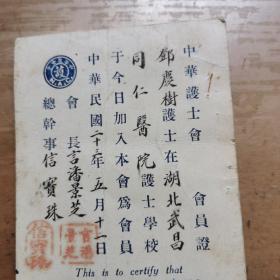 中華護士會 會員證
鄧慶樹護士在湖北武昌
同仁醫院護士學校
于今日加入本會爲會員
中華民國二十三年五月十二日
會長言潘景芝
總幹事信寶珠
This is to certify that